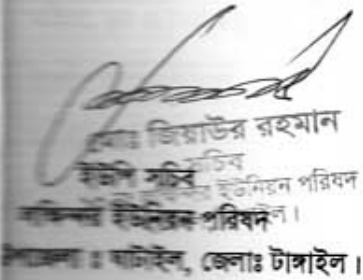 মোঃ জিয়াউর রহমান
সচিব
ইউপি সচিব
ইউনিয়ন পরিষদ
ইউনিয়ন পরিষদ
উপজেলা ঃ ঘাটাইল, জেলাঃ টাঙ্গাইল।